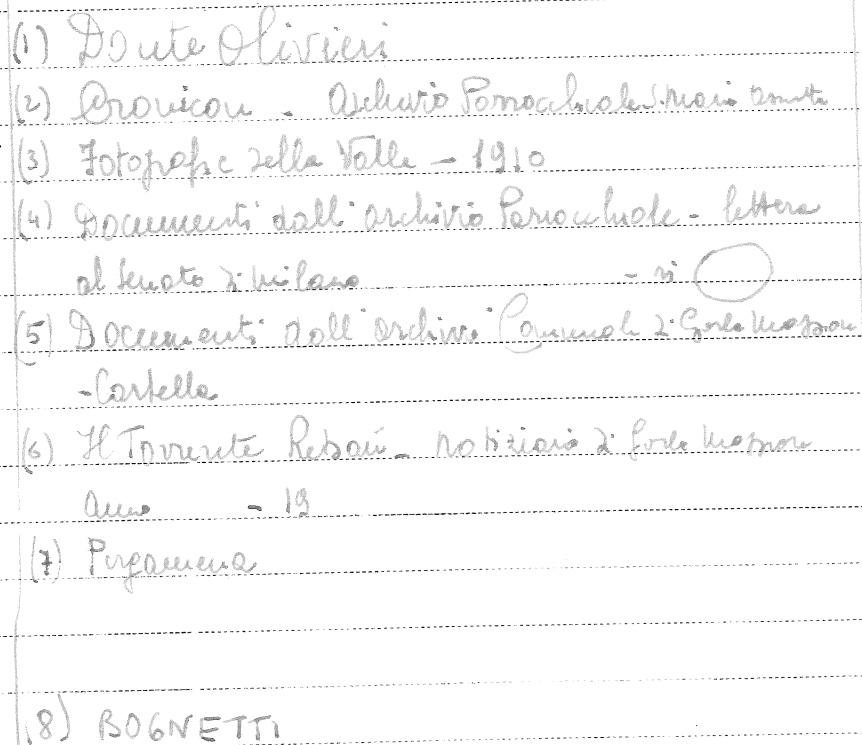 (1) Dante Olivieri
(2) Cronicon - Archivio Parrocchiale S. Maria Assunta
(3) Fotografie della Valle - 1910
(4) Documenti dall'archivio Parrocchiale - lettera
al Senato di Milano - di
(5) Documenti dall'archivio Comunale di Gorla Maggiore
- Cartella
(6) Il Torrente Reboi - notiziario di Gorla Maggiore
Anno - 19
(7) Pergamena
(8) BOGNETTI